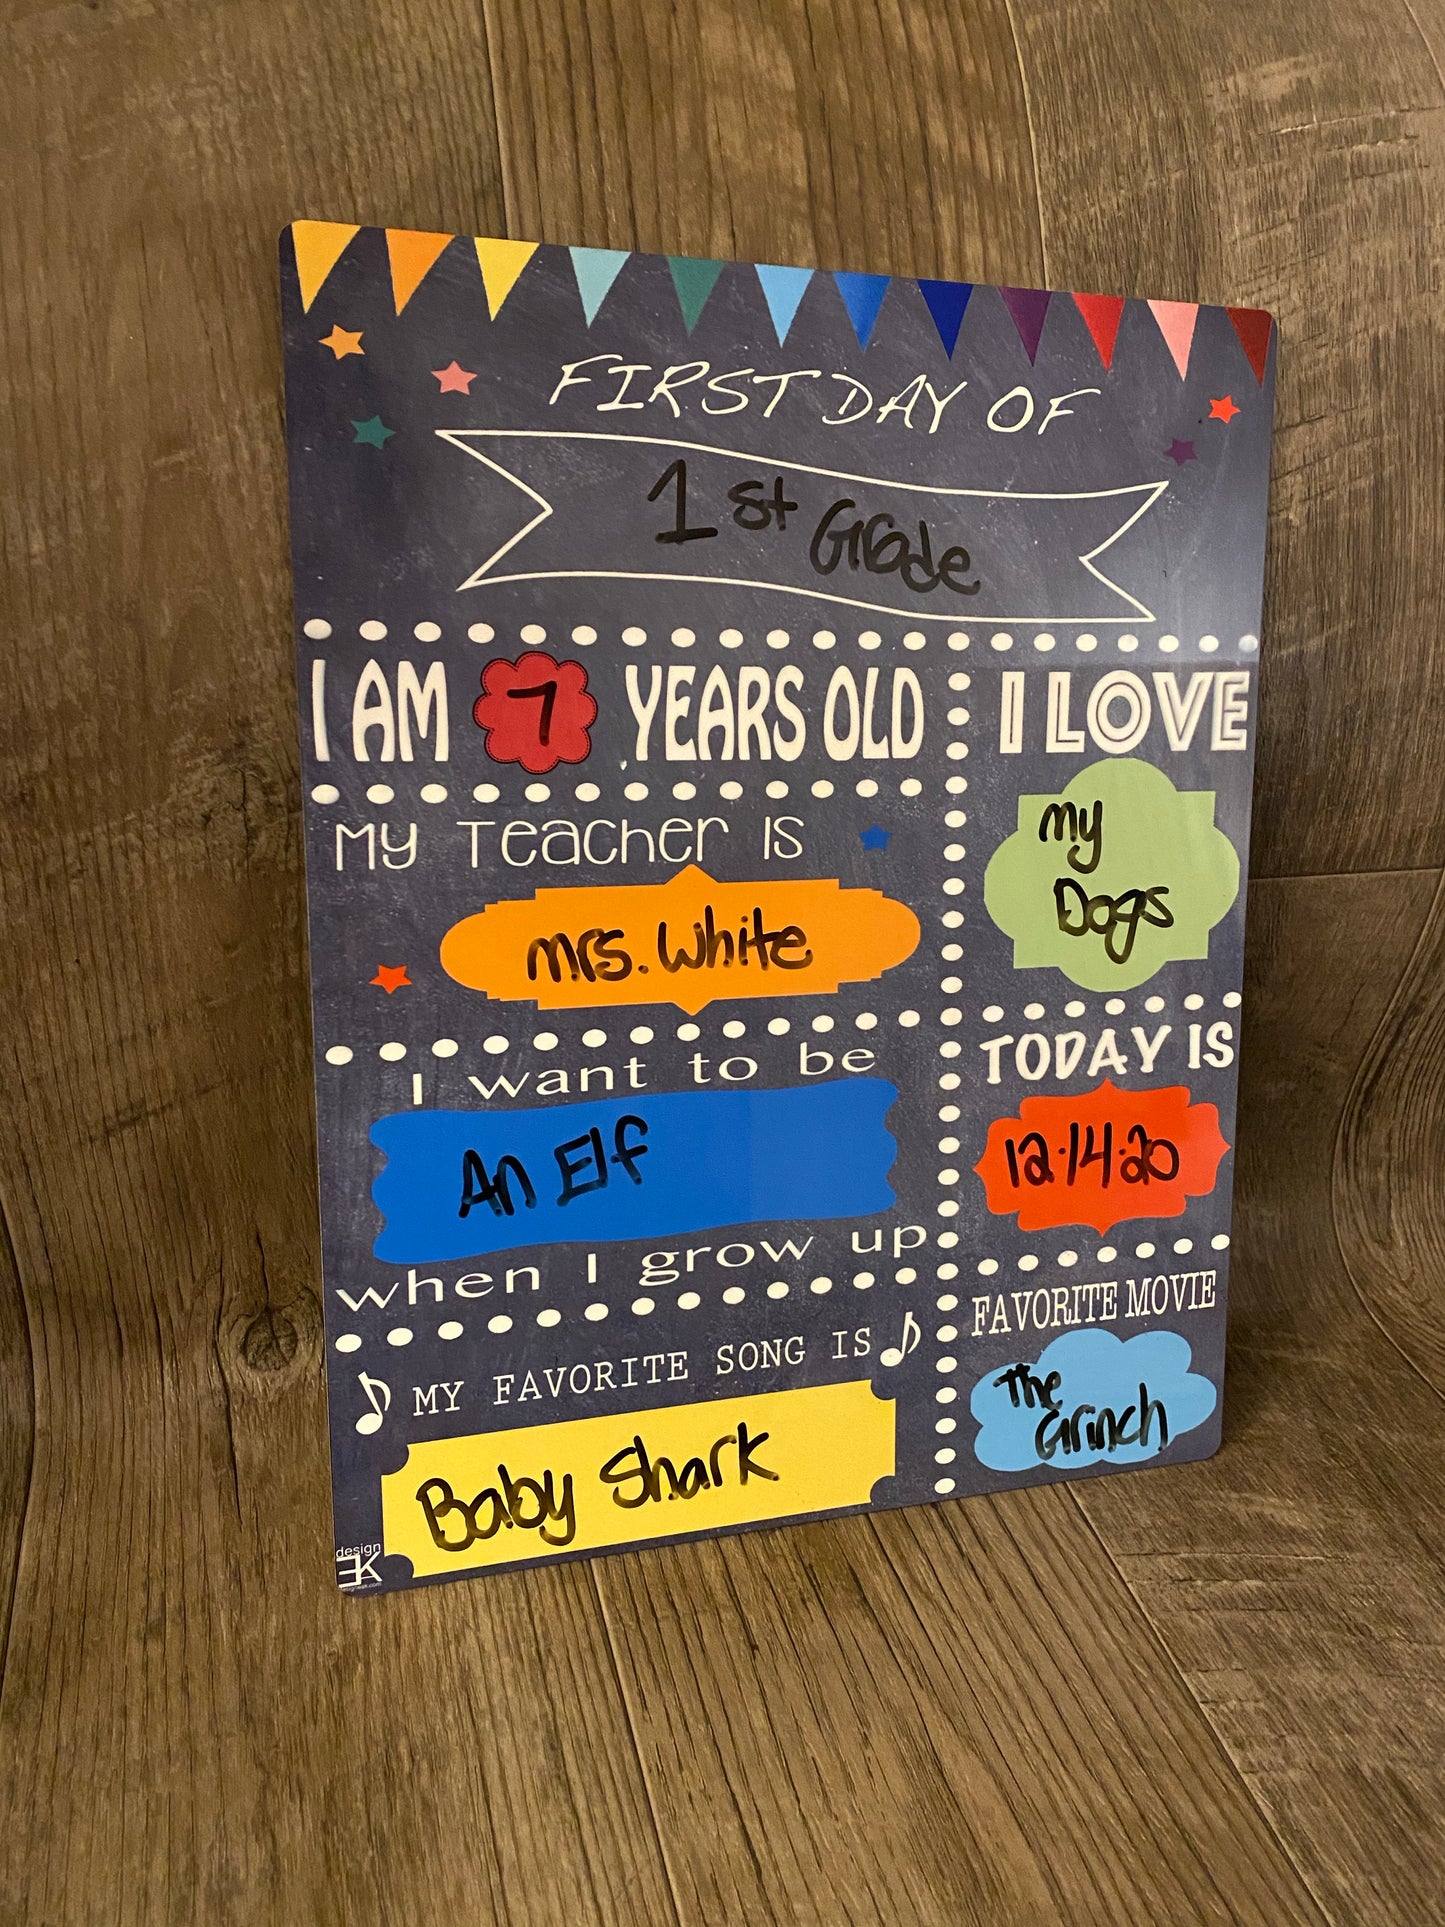 FIRST DAY OF
1st Grade
I AM 7 YEARS OLD
My Teacher is
Mrs. White
I want to be
An Elf
when I grow up
MY FAVORITE SONG IS
Baby Shark
I LOVE
My
Dogs
TODAY IS
12.14.20
FAVORITE MOVIE
The
Grinch
design
EK